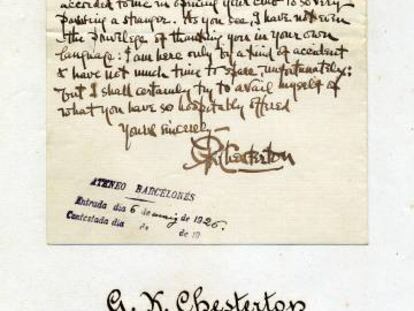 accorded to me in opening your club to so very
passing a stranger. As you see, I have not even
the privilege of thanking you in your own
language: I am here only by a kind of accident
& have not much time to spare, unfortunately;
but I shall certainly try to avail myself of
what you have so hospitably offered
Yours sincerely
GKChesterton
ATENEO BARCELONÉS
Entrada dia 6 de maig de 1926.
Contestada dia de de 19
G. K. Chesterton